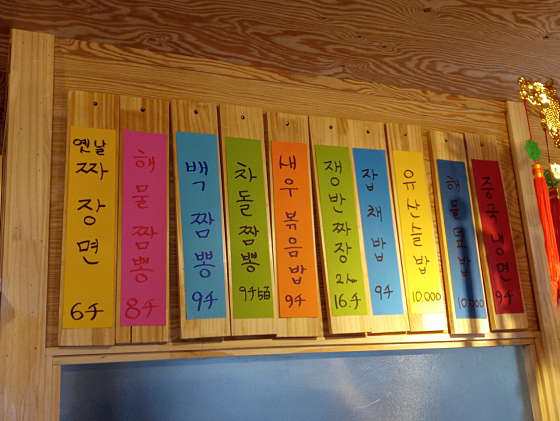 옛날
짜장면
6천
해물짬뽕
8천
백짬뽕
9천
차돌짬뽕
9천5백
새우볶음밥
9천
쟁반짜장
2人
16천
잡채밥
9천
유산슬밥
10,000
해물덮밥
10,000
중국냉면
9천